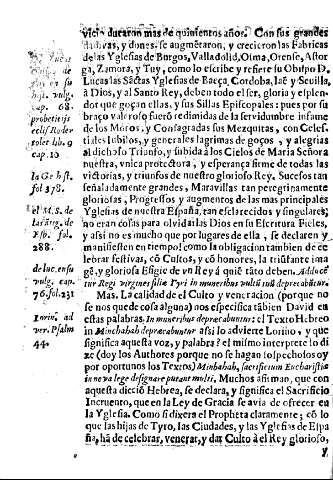 vicio duraron mas de quinientos años. Con sus grandes
dadivas, y dones, se augmētaron, y crecieron las Fabricas
de las Yglesias de Burgos, Valladolid, Osma, Orense, Astor
ga, Zamora, y Tuy, como lo escribe y refiere su Obispo D.
Lucas las Sāctas Yglesias de Baeça, Cordoba, Iaē, y Sevilla,
à Dios, y al Santo Rey, deben todo el ser, gloria y esplen-
dor que goçan ellas, y sus Sillas Episcopales: pues por su
braço valeroso fuerō redimidas de la servidumbre infame
de los Moros, y Consagradas sus Mezquitas, con Celes-
tiales lubilos, y generales lagrimas de goços, y alegrias
al dichoso Triunfo, y subida à los Cielos de Maria Señora
nuestra, vnica protectora, y esperança firme de todas las
victorias, y triunfos de nuestro glorioso Rey. Sucesos tan
señaladamente grandes, Maravillas tan peregrinamente
gloriosas, Progressos y augmentos de las mas principales
Yglesias de nuestra España, tan esclarecidos y singulares;
no eran cosas para olvidallas Dios en su Escritura Fieles,
y assi no es mucho que por lugares de ella, se declaren y
manifiesten en tiempo: como la obligacion tambien de ce
lebrar festivas, cō Cultos, y cō honores, la triūfante ima
gē, y gloriosa Efigie de vn Rey à quiē tāto deben. Adducē
tur Regi virgines filiæ Tyri in muneribus vultū tuū deprecabūtur.
Mas. La calidad de el Culto y veneracion (porque no
se nos quede cosa alguna) nos especifica tābien David en
estas palabras. In muneribus deprecabuntur: el Texto Hebreo
in Minchabah deprecabuntur assi lo advierte Lorino, y que
significa aquesta voz, y palabra? el mismo interprete lo di
ze (doy los Authores porque no se hagan sospechosos y
por oportunos los Textos) Minhabah, sacrificium Eucharistiæ
in nova lege designare putant multi. Muchos afirman, que con
aquesta dicciō Hebrea, se declara, y significa el Sacrificio
Incruento, que en la Ley de Gracia se avia de ofrecer en
la Yglesia. Como si dixera el Propheta claramente; cō lo
que las hijas de Tyro, las Ciudades, y las Yglesias de Espa
ña, hā de celebrar, venerar, y dar Culto à el Rey glorioso,
y
cap. 68.
cap. 10
fol 378.
el M.S. de
288.
de luc. en su
vulg. cap.
76. fol. 231
Lorin. ad
ver. Psalm
44.